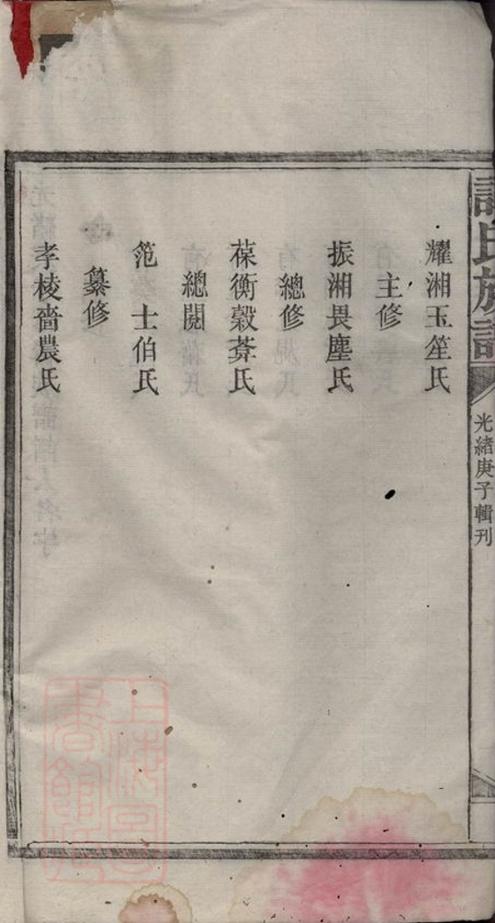 氏族譜
光緒庚子輯刊
耀湘玉笙氏
主修
振湘畏塵氏
總修
葆衡穀莾氏
總閱
范士伯氏
纂修
孝棱嗇農氏